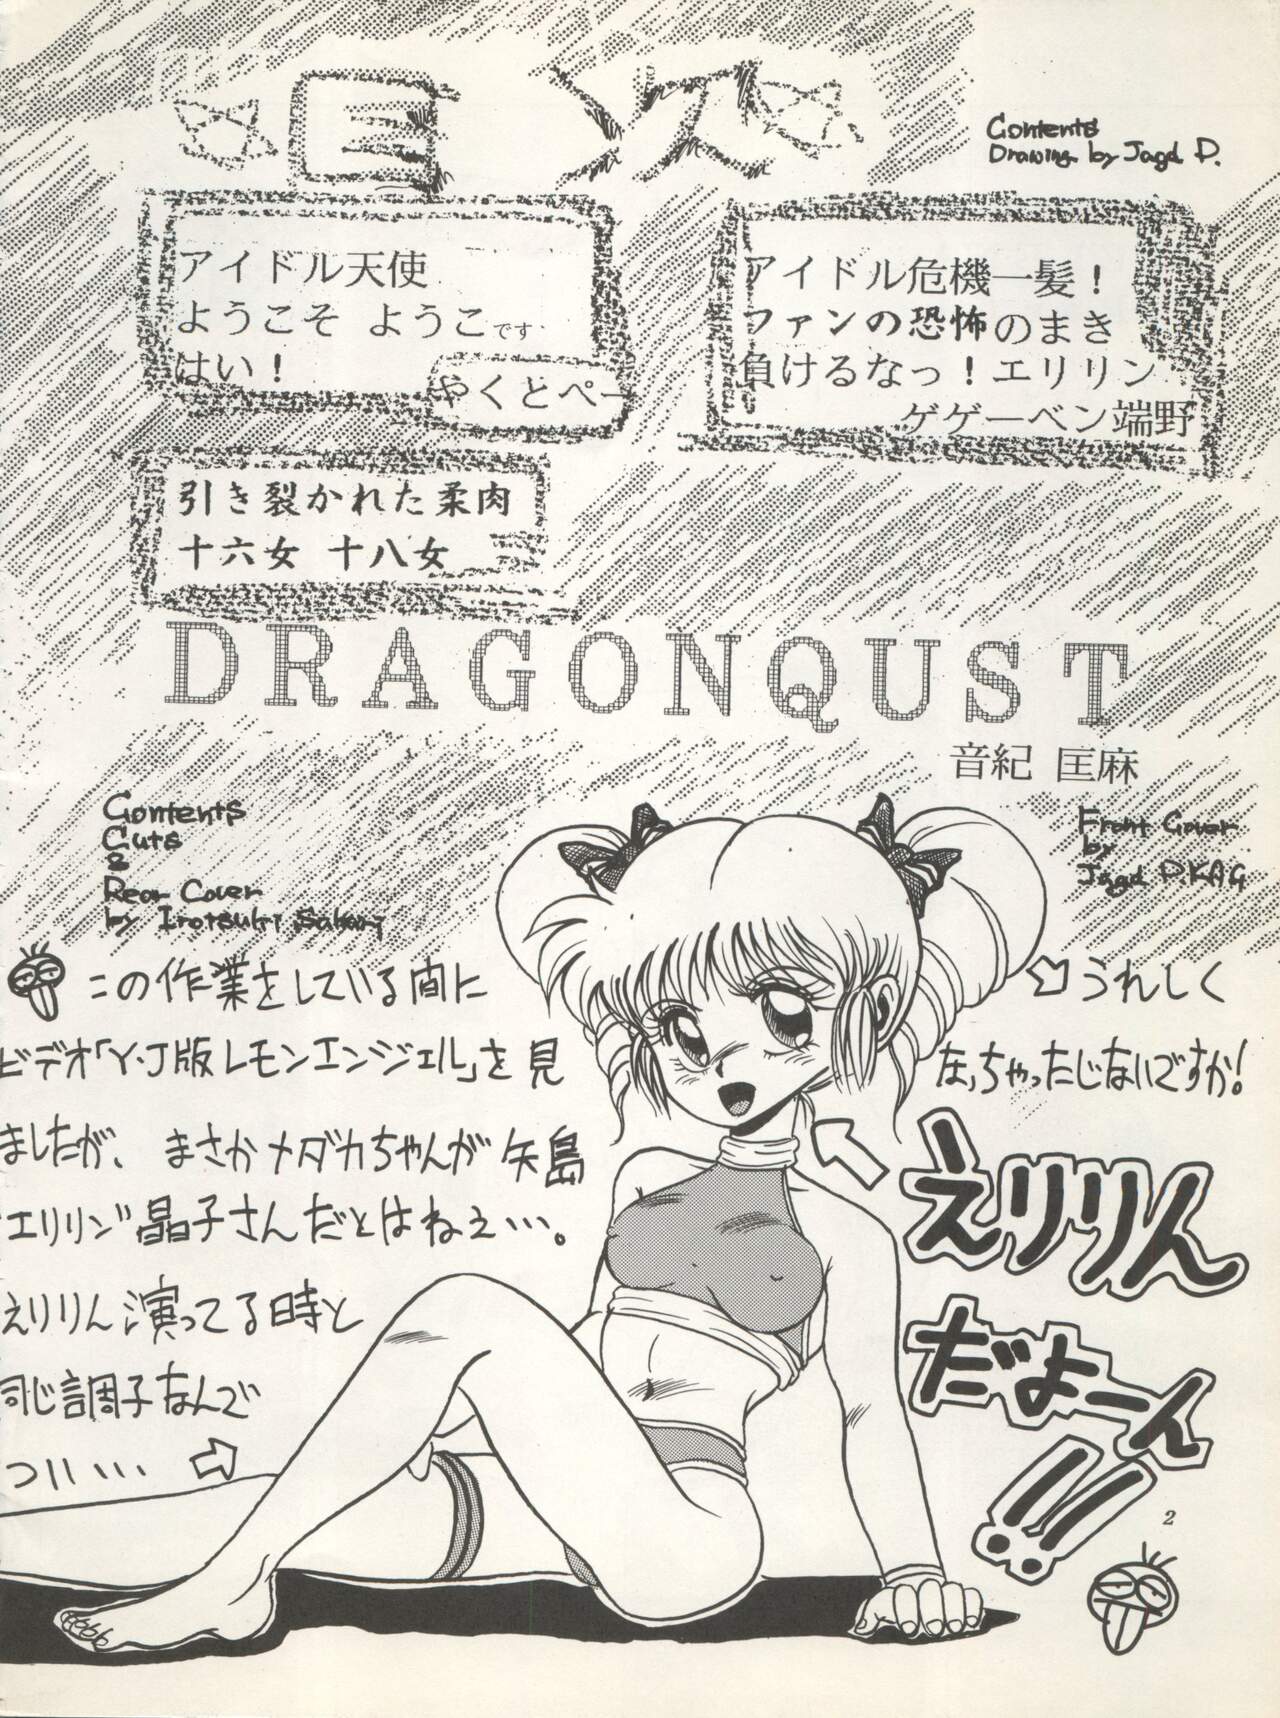 目次
Contents
Drawing by Jagd D.
アイドル天使
ようこそ ようこです
はい！
やくとぺー
アイドル危機一髪！
ファンの恐怖のまき
負けるなっ！エリリン
ゲゲーベン端野
引き裂かれた柔肉
十六女 十八女
DRAGONQUST
音紀 匡麻
Contents
Cuts
&
Rear Cover
by Irotsuki Sakari
Front Cover
by
Jagd D.KAG
この作業をしている間に
ビデオ「Y・J版レモンエンジェル」を見
ましたが、まさかメダカちゃんが矢島
"エリリン"晶子さんだとはねぇ…。
えりりん演ってる時と
同じ調子なんで
つい…
うれしく
なっちゃったじゃないですか！
えりりん
だよーん
!!!
2